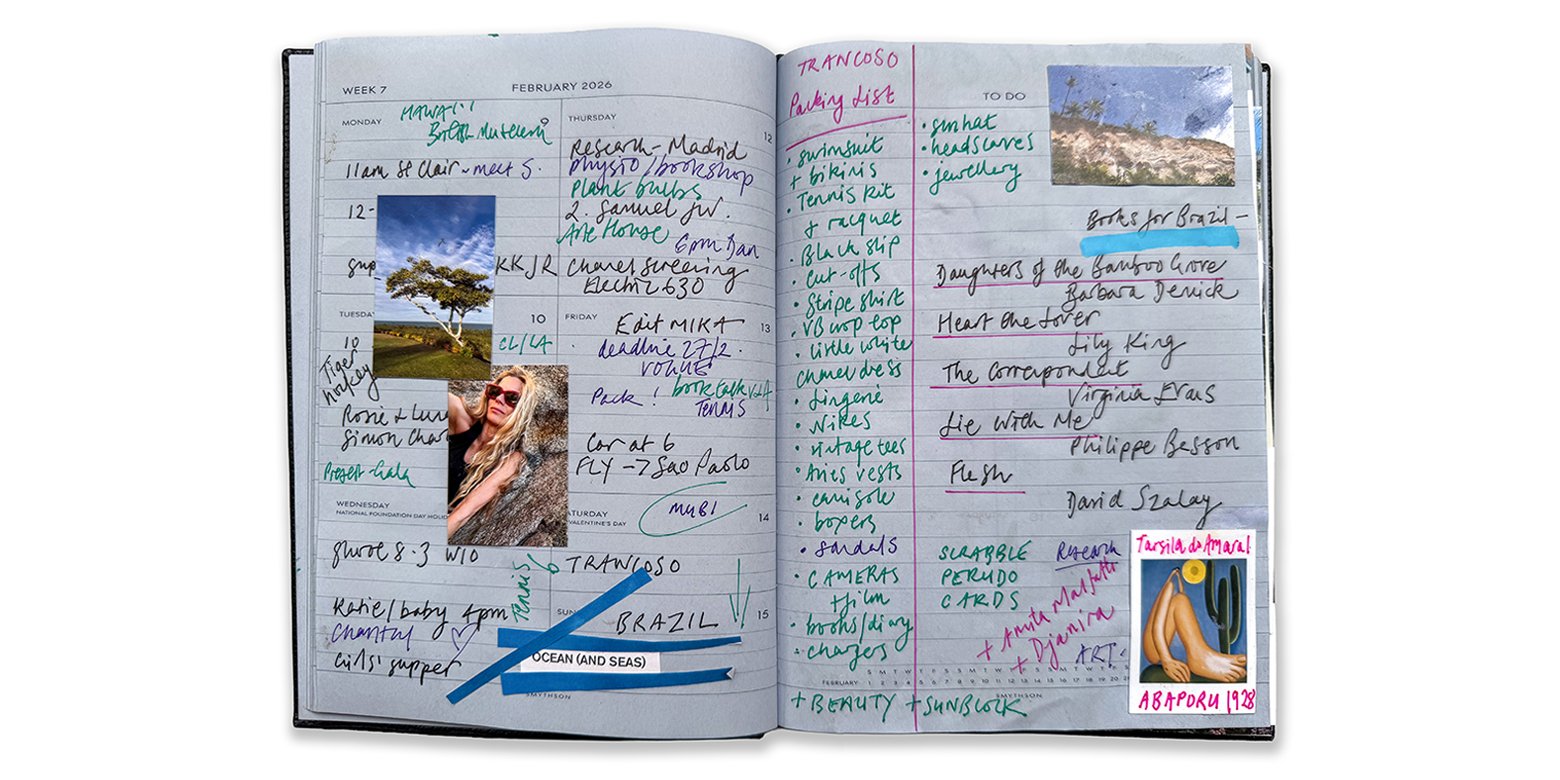 WEEK 7
FEBRUARY 2026
MONDAY
9
HAWAI'I
British Museum
11am St Clair - meet S.
12-
sup
KKJR
TUESDAY
10
10
CL/LA
Tiger
hockey
Rosie &
Simon
Present - Gala
WEDNESDAY
NATIONAL FOUNDATION DAY
shoot 8-3 W10
Katie/baby 4pm
Chantal
Girls' supper
THURSDAY
12
Research - Madrid
physio/bookshop
Plant bulbs
2. Samuel JW.
Arte House
6pm Dan
Chanel Screening
Electric 630
FRIDAY
13
Edit MIKA
deadline 27/2.
VOGUE
Pack!
book talk V&A
Tennis
Car at 6
FLY → Sao Paolo
MUBI
ATURDAY
VALENTINE'S DAY
14
Tennis
6
TRANCOSO
SUN
15
BRAZIL
OCEAN (AND SEAS)
SMYTHSON
TRANCOSO
Packing List
• swimsuit
+ bikinis
• Tennis kit
+ racquet
• Black slip
• cut-offs
• Stripe shirt
• VB wop top
• little white
chanel dress
• Lingerie
• Nikes
• vintage tees
• Aries vests
• camisole
• boxers
• sandals
• CAMERAS
+ film
• books/diary
• chargers
+ BEAUTY + SUNBLOCK
TO DO
• sunhat
• headscarves
• jewellery
Books for Brazil -
Daughters of the Bamboo Grove
Barbara Demick
Heart the Lover
Lily King
The Correspondent
Virginia Evans
Lie With Me
Philippe Besson
Flesh
David Szalay
SCRABBLE
PERUDO
CARDS
Research
+ Anita Malfatti
+ Djanira
ART.
Tarsila do Amaral
ABAPORU 1928
FEBRUARY
S M T W T F S S M T W T F S S M T W T F S
1 2 3 4 5 6 7 8 9 10 11 12 13 14 15 16 17 18 19 20 21
SMYTHSON